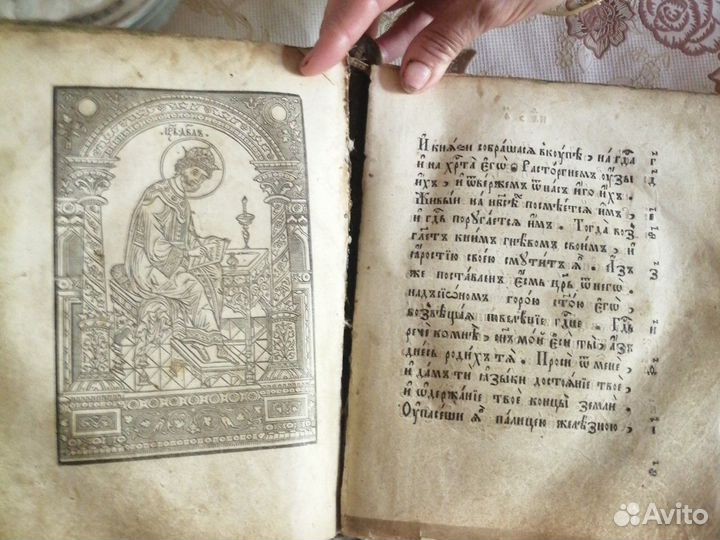 ЦРЬ ДВДЪ
И҆ кнѧ́зи собра́шасѧ вкꙋ́пѣ, на гд҇а
и҆ на хр҇та̀ є҆гѡ̀. Расто́ргнем ᲂу҆́зы
и҆́хъ, и҆ ѿве́ржем ѿ на́съ и҆́го и҆́хъ.
Живы́и на нб҃сѣ́хъ посмѣе́тсѧ и҆́мъ,
и҆ гд҇ь порꙋга́етсѧ и҆́мъ. Тогда̀ воз
гл҃етъ кни́мъ гнѣ́вом свои́мъ, и҆
ꙗ҆́ростїю свое́ю смꙋти́тъ ѧ҆̀. А҆́зъ
же поста́вленъ є҆́смь цр҃ь ѿ негѡ̀
надъ сїѡ́номъ горо́ю ст҃о́ю є҆гѡ̀,
возвѣща́ѧ повелѣ́нїе гд҇не. Гд҇ь
речѐ ко мнѣ̀, сн҃ъ мо́й є҆сѝ ты̀, а҆́зъ
дне́сь роди́хъ тѧ̀. Просѝ ѿ менѐ,
и҆ да́мъ тѝ ꙗ҆зы́ки достоѧ́нїе твоѐ,
и҆ ѡ҆держа́нїе твоѐ концы̀ землѝ,
Оу҆пасе́ши ѧ҆̀ па́лицею желѣ́зною,
Avito